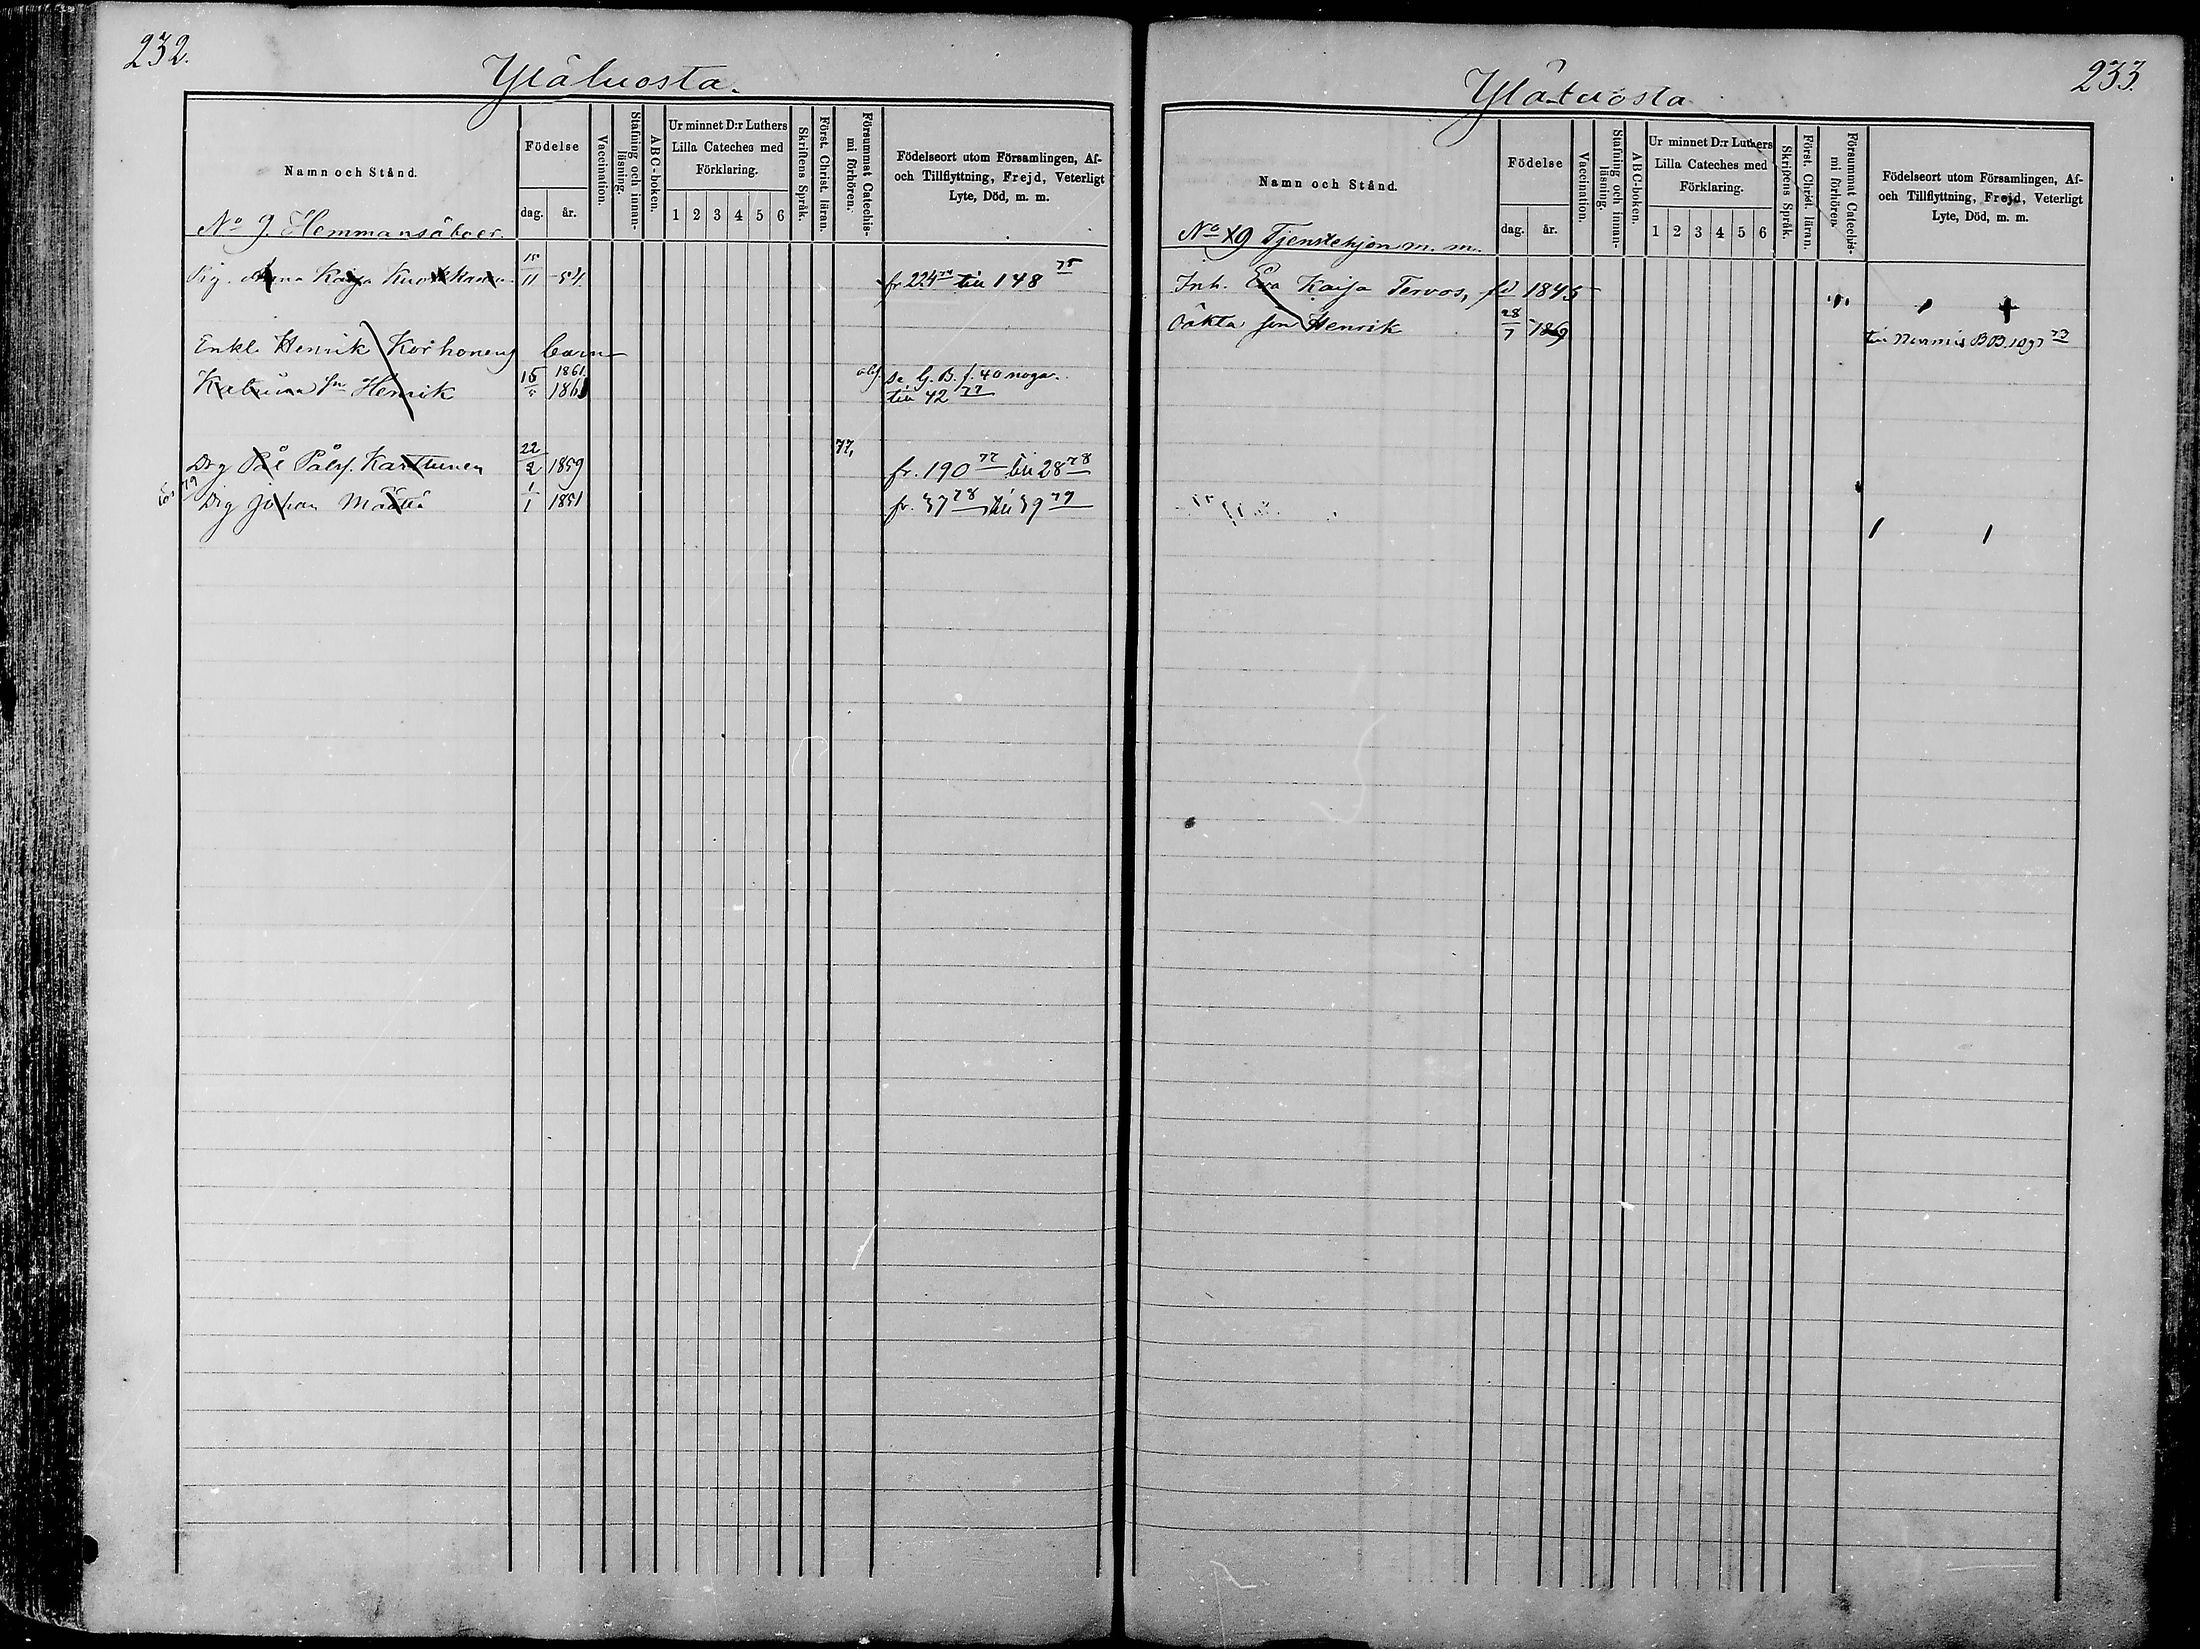 232.
Yläluosta.
Namn och Stånd.
Födelse
dag.
år.
Vaccination.
Stafning och innan-
läsning.
ABC-boken.
Ur minnet D:r Luthers
Lilla Cateches med
Förklaring.
1 2 3 4 5 6
Skriftens Språk.
Först. Christ. läran.
Försummat Catechis-
mi förhören.
Födelseort utom Församlingen, Af-
och Tillflyttning, Frejd, Veterligt
Lyte, Död, m. m.
No 9. Hemmansåboer.
Pig. Anna Kaija 15/11 -54. fr 224 74 till 148 75
Enkl. Henrik Korhonens barn
1861.
Katrina Sn Henrik 15 1861 Se G. B. f. 40 noga.
till 42 77
Drg Pål Pålss. Karttunen 22/2 1859 77, fr. 190 77 till 28 78
Drg Johan Määttä 1/1 1851 fr. 37 78 till 39 79
233.
Yläluosta
Namn och Stånd.
Födelse
dag.
år.
Vaccination.
Stafning och innan-
läsning.
ABC-boken.
Ur minnet D:r Luthers
Lilla Cateches med
Förklaring.
1 2 3 4 5 6
Skriftens Språk.
Först. Christ. läran.
Försummat Catechis-
mi förhören.
Födelseort utom Församlingen, Af-
och Tillflyttning, Frejd, Veterligt
Lyte, Död, m. m.
No 9 Tjenstehjon m. m.
Inh. Eva Kaisa Tervos, fd 1845
Oäkta son Henrik 28/7 1869 till Nurmis